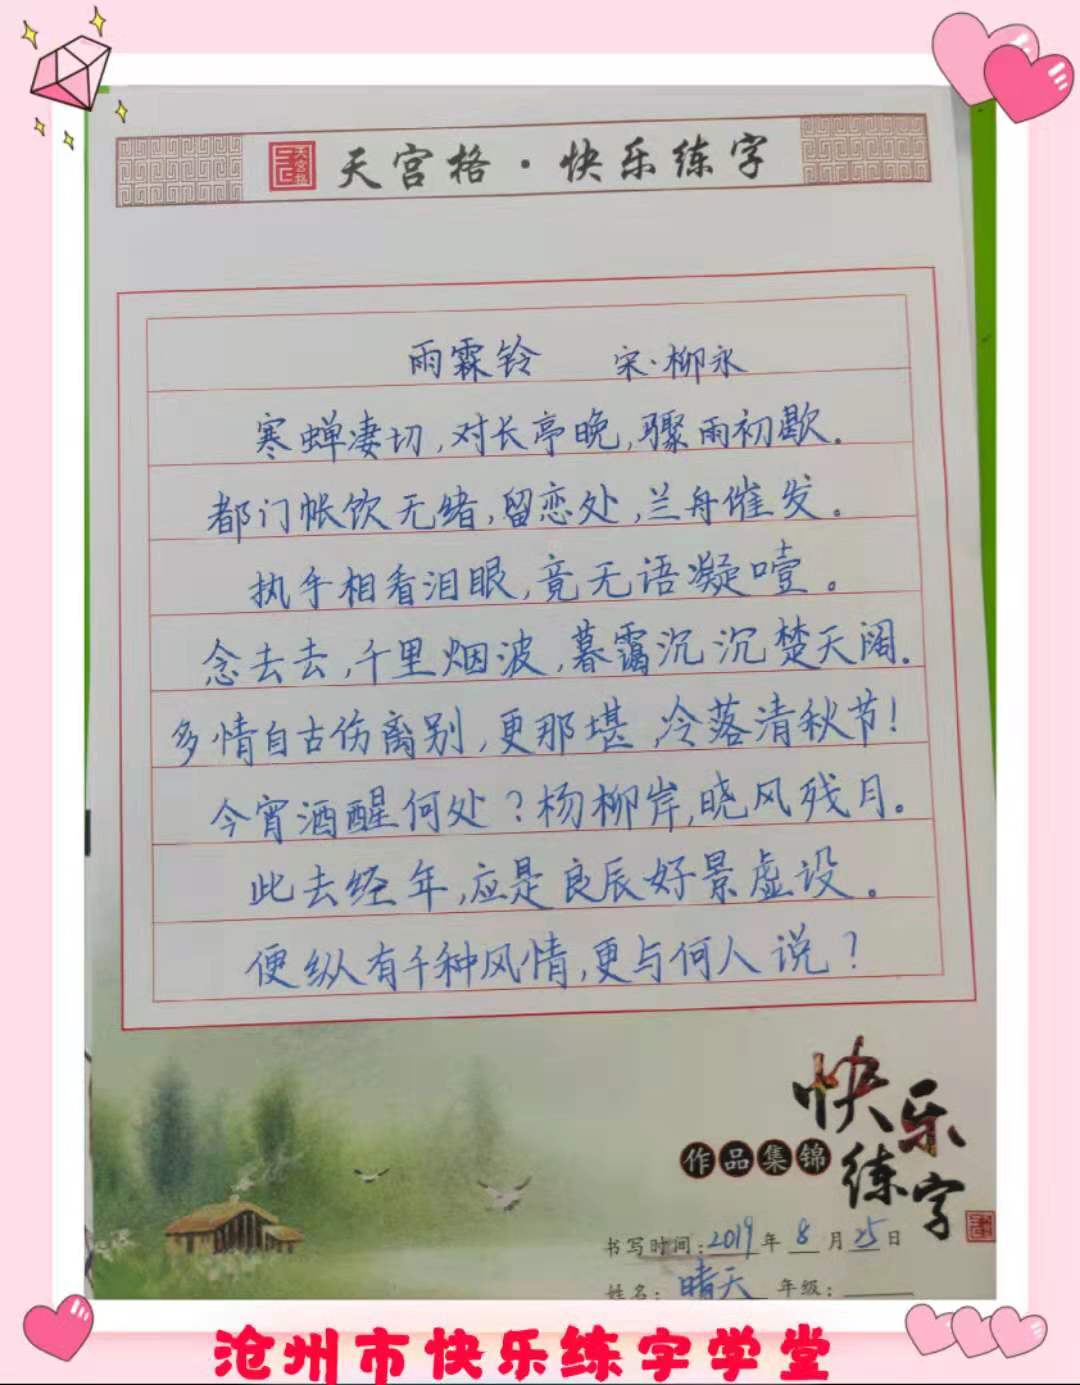 天宫格
天宫格·快乐练字
雨霖铃 宋·柳永
寒蝉凄切,对长亭晚,骤雨初歇。
都门帐饮无绪,留恋处,兰舟催发。
执手相看泪眼,竟无语凝噎。
念去去,千里烟波,暮霭沉沉楚天阔。
多情自古伤离别,更那堪,冷落清秋节!
今宵酒醒何处?杨柳岸,晓风残月。
此去经年,应是良辰好景虚设。
便纵有千种风情,更与何人说?
快乐
作品集锦
练字
书写时间:2019年8月25日
姓名:晴天 年级:
沧州市快乐练字学堂